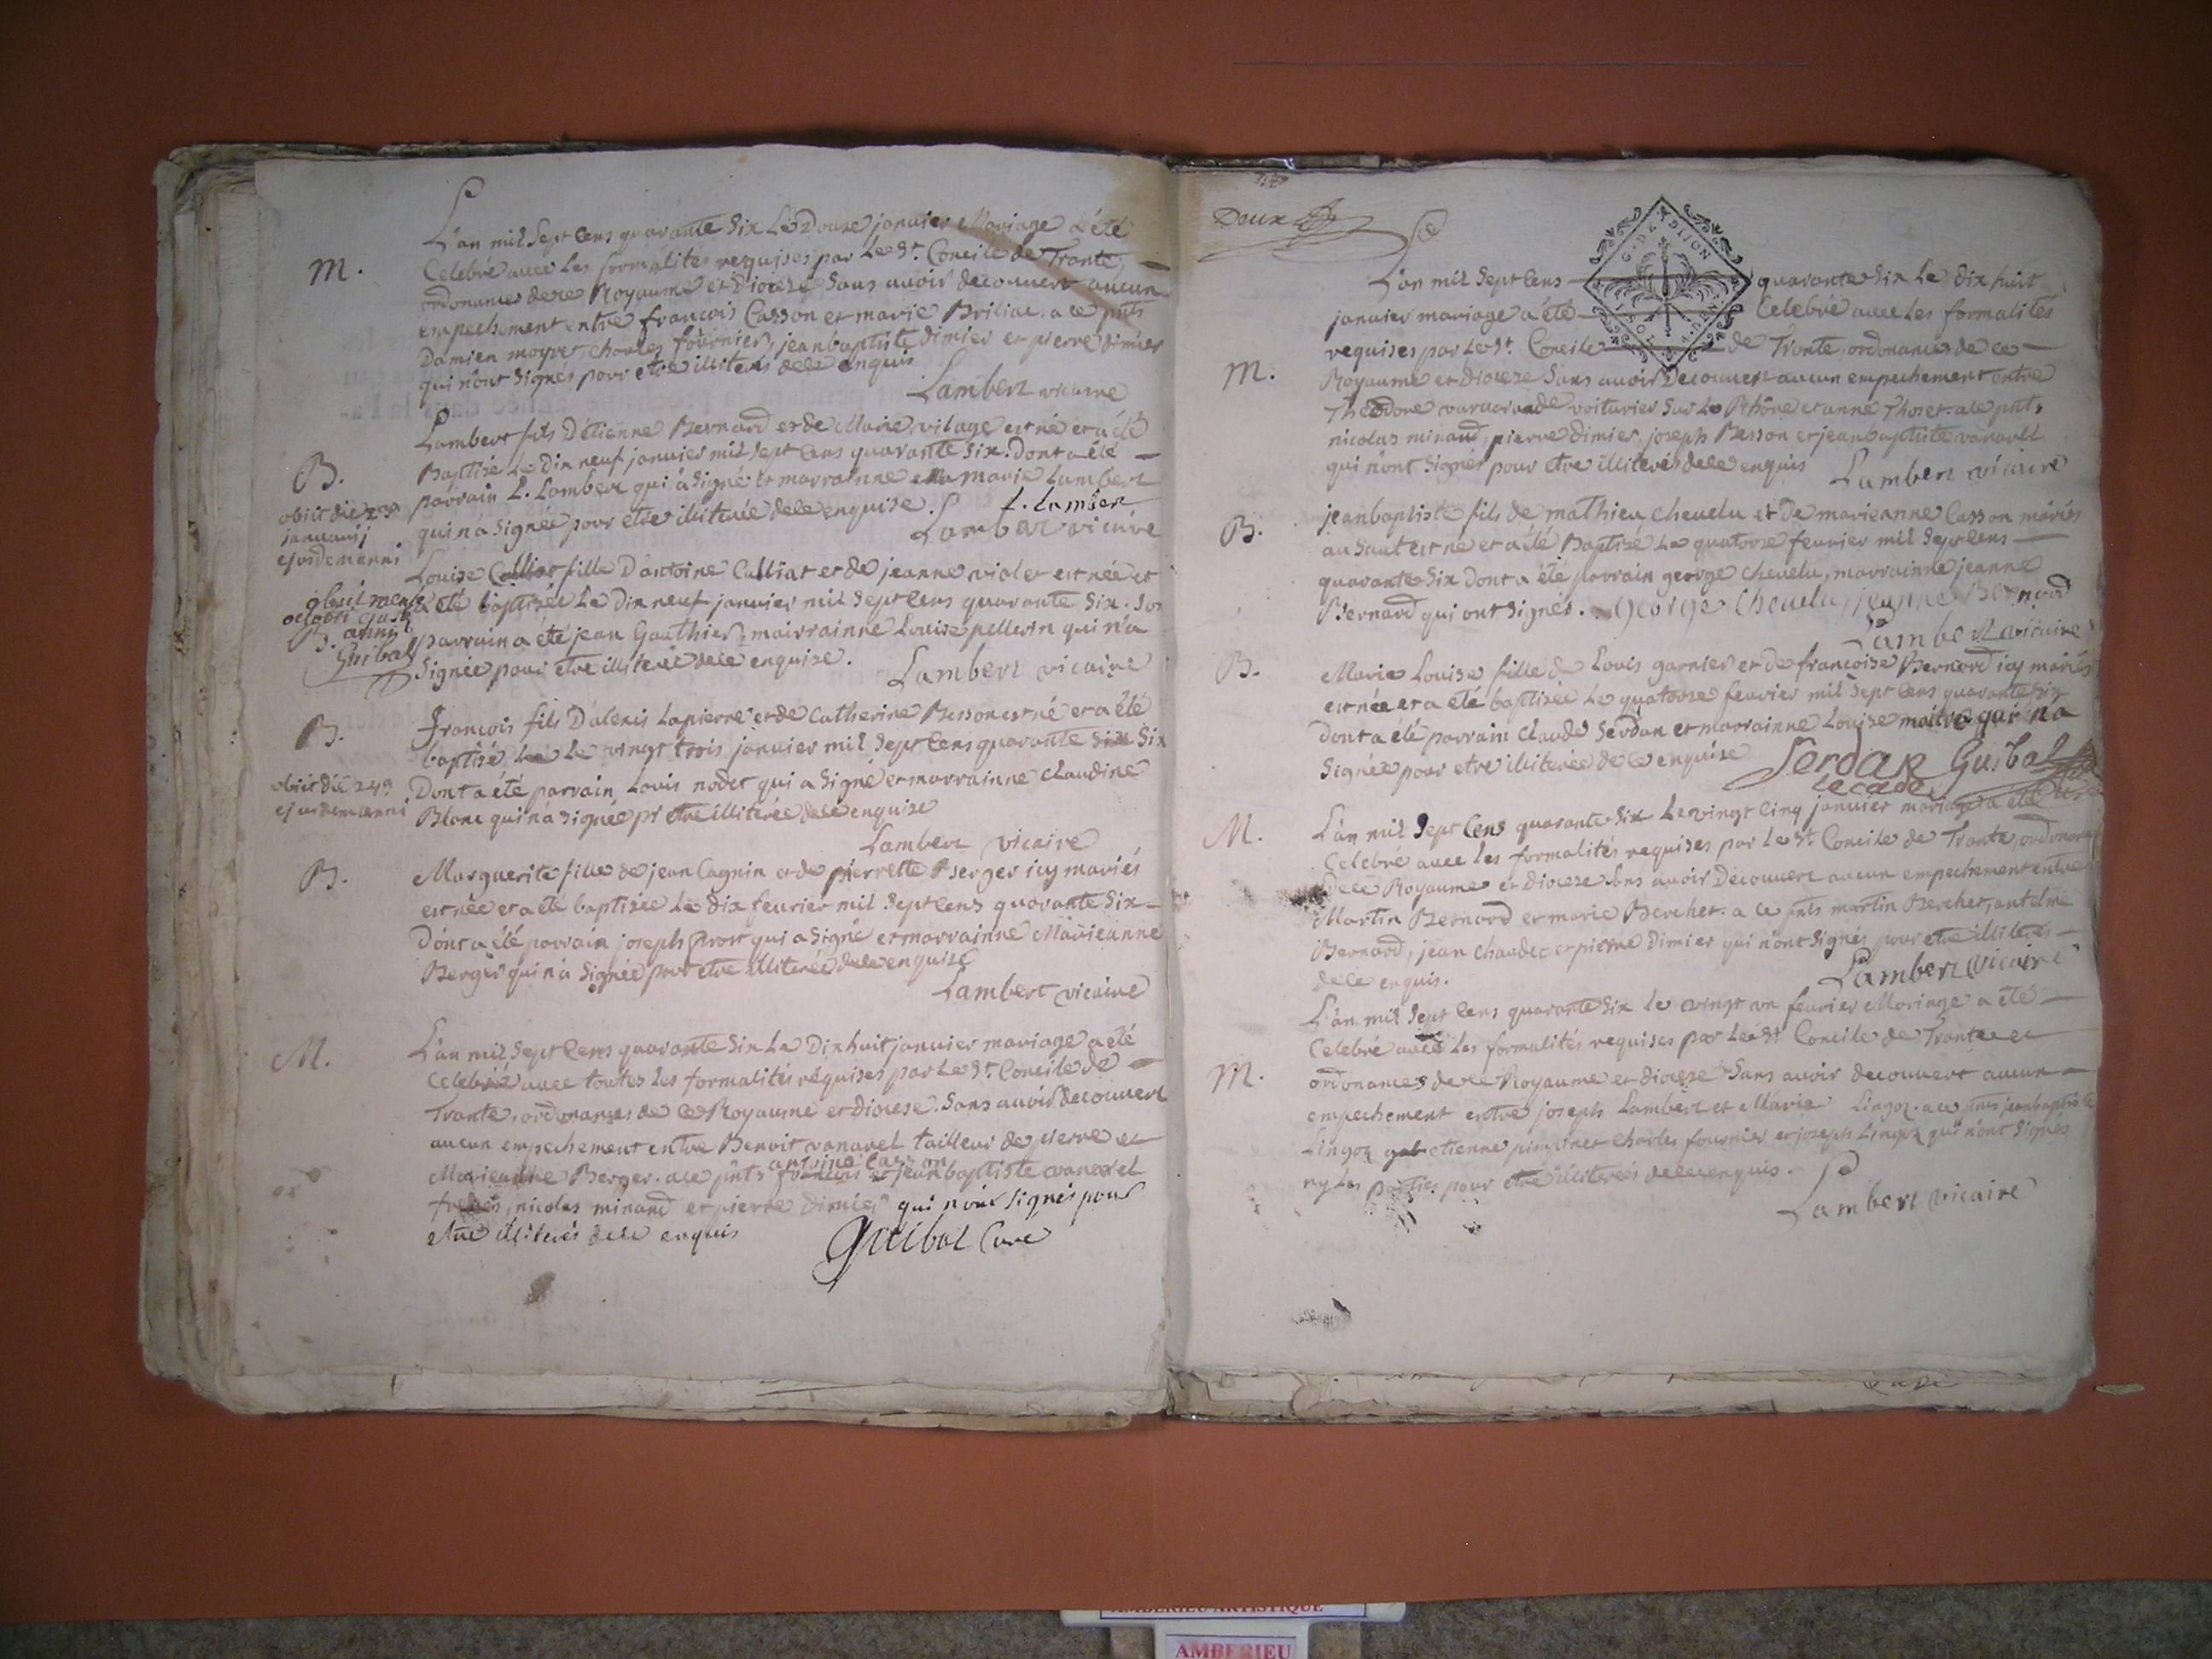 L'an mil Sept Cens quarante Six Le Douze janvier Mariage a été
M.
Celebré avec Les formalités requises par Le St. Concile de Trante,
ordonances de ce Royaume et Diocese Sans avoir decouvert aucun
empechement entre françois Casson et marie Briliac. a ce pnts
Damien moyret, charles fournier, jeanbaptiste dimier et pierre dimier
qui n'ont Signés pour etre illiterés de ce enquis
Lambert vicaire
Lambert fils D'étienne Bernard et de Marie vilage est né et a été
B.
Baptisé Le Dix neuf janvier mil Sept Cens quarante Six. Dont a été
parrain L. Lambert qui a Signé et marrainne marie Lambert
obiit die
januarij
ejusdem anni
qui n'a Signée pour etre illiterée de ce enquise.
L. Lambert
Lambert vicaire
Louise Culliat fille D'antoine Culliat et de jeanne violet est née et
obiit mense
octobri ejusd.
anni
Guibal
B.
a été baptisée Le Dix neuf janvier mil Sept Cens quarante Six. Son
parrain a été jean Gauthier, mairrainne Louise pellerin qui n'a
Signée pour etre illiterée de ce enquise.
Lambert vicaire
B.
françois fils D'alexis Lapierre et de Catherine Besson est né et a été
baptisé Le Le vingt trois janvier mil Sept Cens quarante Six Six
obiit die 24a
ejusdem anni
Dont a été parrain Louis nodet qui a Signé et marrainne claudine
Blanc qui n'a Signée pr etre illiterée de ce enquise
Lambert vicaire
B.
Marguerite fille de jean Cagnin et de pierrette Berger icy mariés
est née et a été baptisée Le dix fevrier mil Sept Cens quarante Six
Dont a été parrain joseph prost qui a Signé et marrainne Marieanne
Berger qui n'a Signée pour etre illiterée de ce enquise
Lambert vicaire
M.
L'an mil Sept Cens quarante Six Le Dix huit janvier mariage a été
Celebré avec toutes Les formalités réquises par Le St. Concile de
Trante, ordonances de ce Royaume et diocese. Sans avoir decouvert
aucun empechement entre Benoit vanarel tailleur de pierre et
Marieanne Berger. a ce pnts françois et jeanbaptiste vanarel
antoine Casson
freres, nicolas minand et pierre dimier qui n'ont Signés pour
etre illiterés de ce enquis
Guibal Curé
Deux
G. DE DIJON
L'an mil Sept Cens quarante Six Le Dix huit
janvier mariage a été Celebré avec Les formalités
requises par Le St. Concile de Trante, ordonances de ce
M.
Royaume et diocese Sans avoir Decouvert aucun empechement entre
Theodore voiturier Sur Le Rhône et anne Thoset. a ce pnts
nicolas minand, pierre dimier, joseph Besson et jeanbaptiste vanarel
qui n'ont Signés pour etre illiterés de ce enquis
Lambert vicaire
B.
jeanbaptiste fils de mathieu chevelu et de marieanne Casson mariés
au Saut est né et a été Baptisé Le quatorze fevrier mil Sept Cens
quarante Six dont a été parrain george chevelu, marrainne jeanne
Bernard qui ont Signés.
George Chevelu jeanne Bernard
Lambert vicaire
B.
Marie Louise fille de Louis garnier et de françoise Bernard icy mariés
est née et a été baptisée Le quatorze fevrier mil Sept Cens quarante Six
dont a été parrain claude Serdan et marrainne Louise maitre qui n'a
Signée pour etre illiterée de ce enquise
Guibal
M.
L'an mil Sept Cens quarante Six Le vingt Cinq janvier mariage a été
Celebré avec les formalités requises par Le St. Concile de Trante, ordonances
de ce Royaume et diocese Sans avoir Decouvert aucun empechement entre
Martin Bernard et marie Berchet. a ce pnts martin Berchet, antelme
Bernard, jean chaudet et pierre Dimier qui n'ont Signés pour etre illiterés
de ce enquis.
Lambert vicaire
L'an mil Sept Cens quarante Six le vingt un fevrier Mariage a été
Celebré avec Les formalités requises par Le St Concile de Trante et
M.
ordonances de ce Royaume et diocese Sans avoir decouvert aucun
empechement entre joseph Lambert et Marie Lingoz. a ce pnts jeanbaptiste
Lingoz etienne charles fournier et joseph Lingoz qui n'ont Signés
ny Les parties pour etre illiterés de ce enquis.
Lambert vicaire
AMBERIEU ARTISTIQUE
AMBERIEU